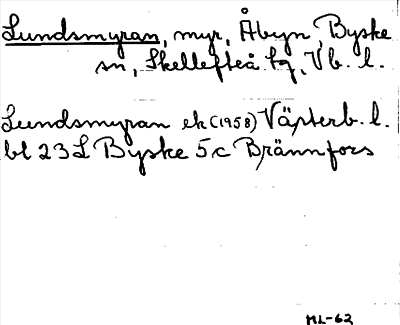 Lundsmyran, myr, Åbyn, Byske
sn, Skellefteå tg, Vb. l.
Lundsmyran ek (1958) Västerb. l.
bl 23L Byske 5c Brännfors
ML-62